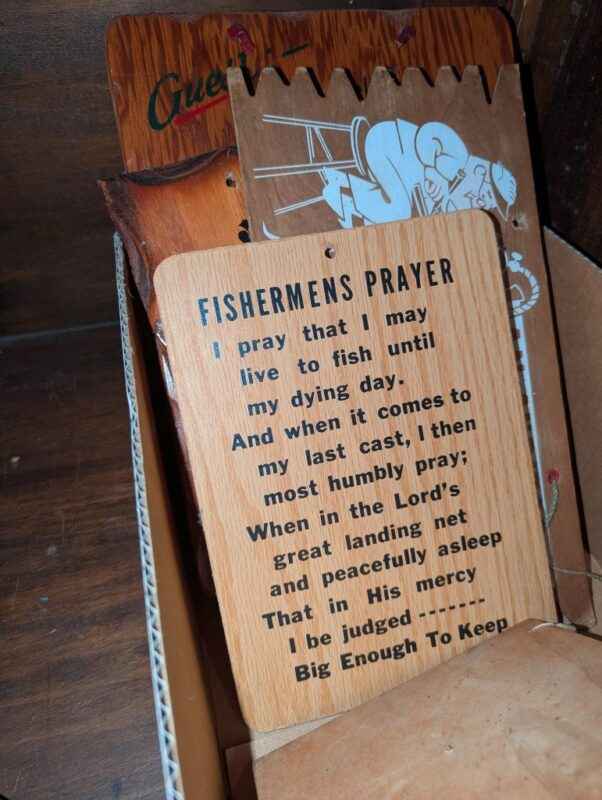 FISHERMENS PRAYER
I pray that I may
live to fish until
my dying day.
And when it comes to
my last cast, I then
most humbly pray;
When in the Lord's
great landing net
and peacefully asleep
That in His mercy
I be judged -------
Big Enough To Keep